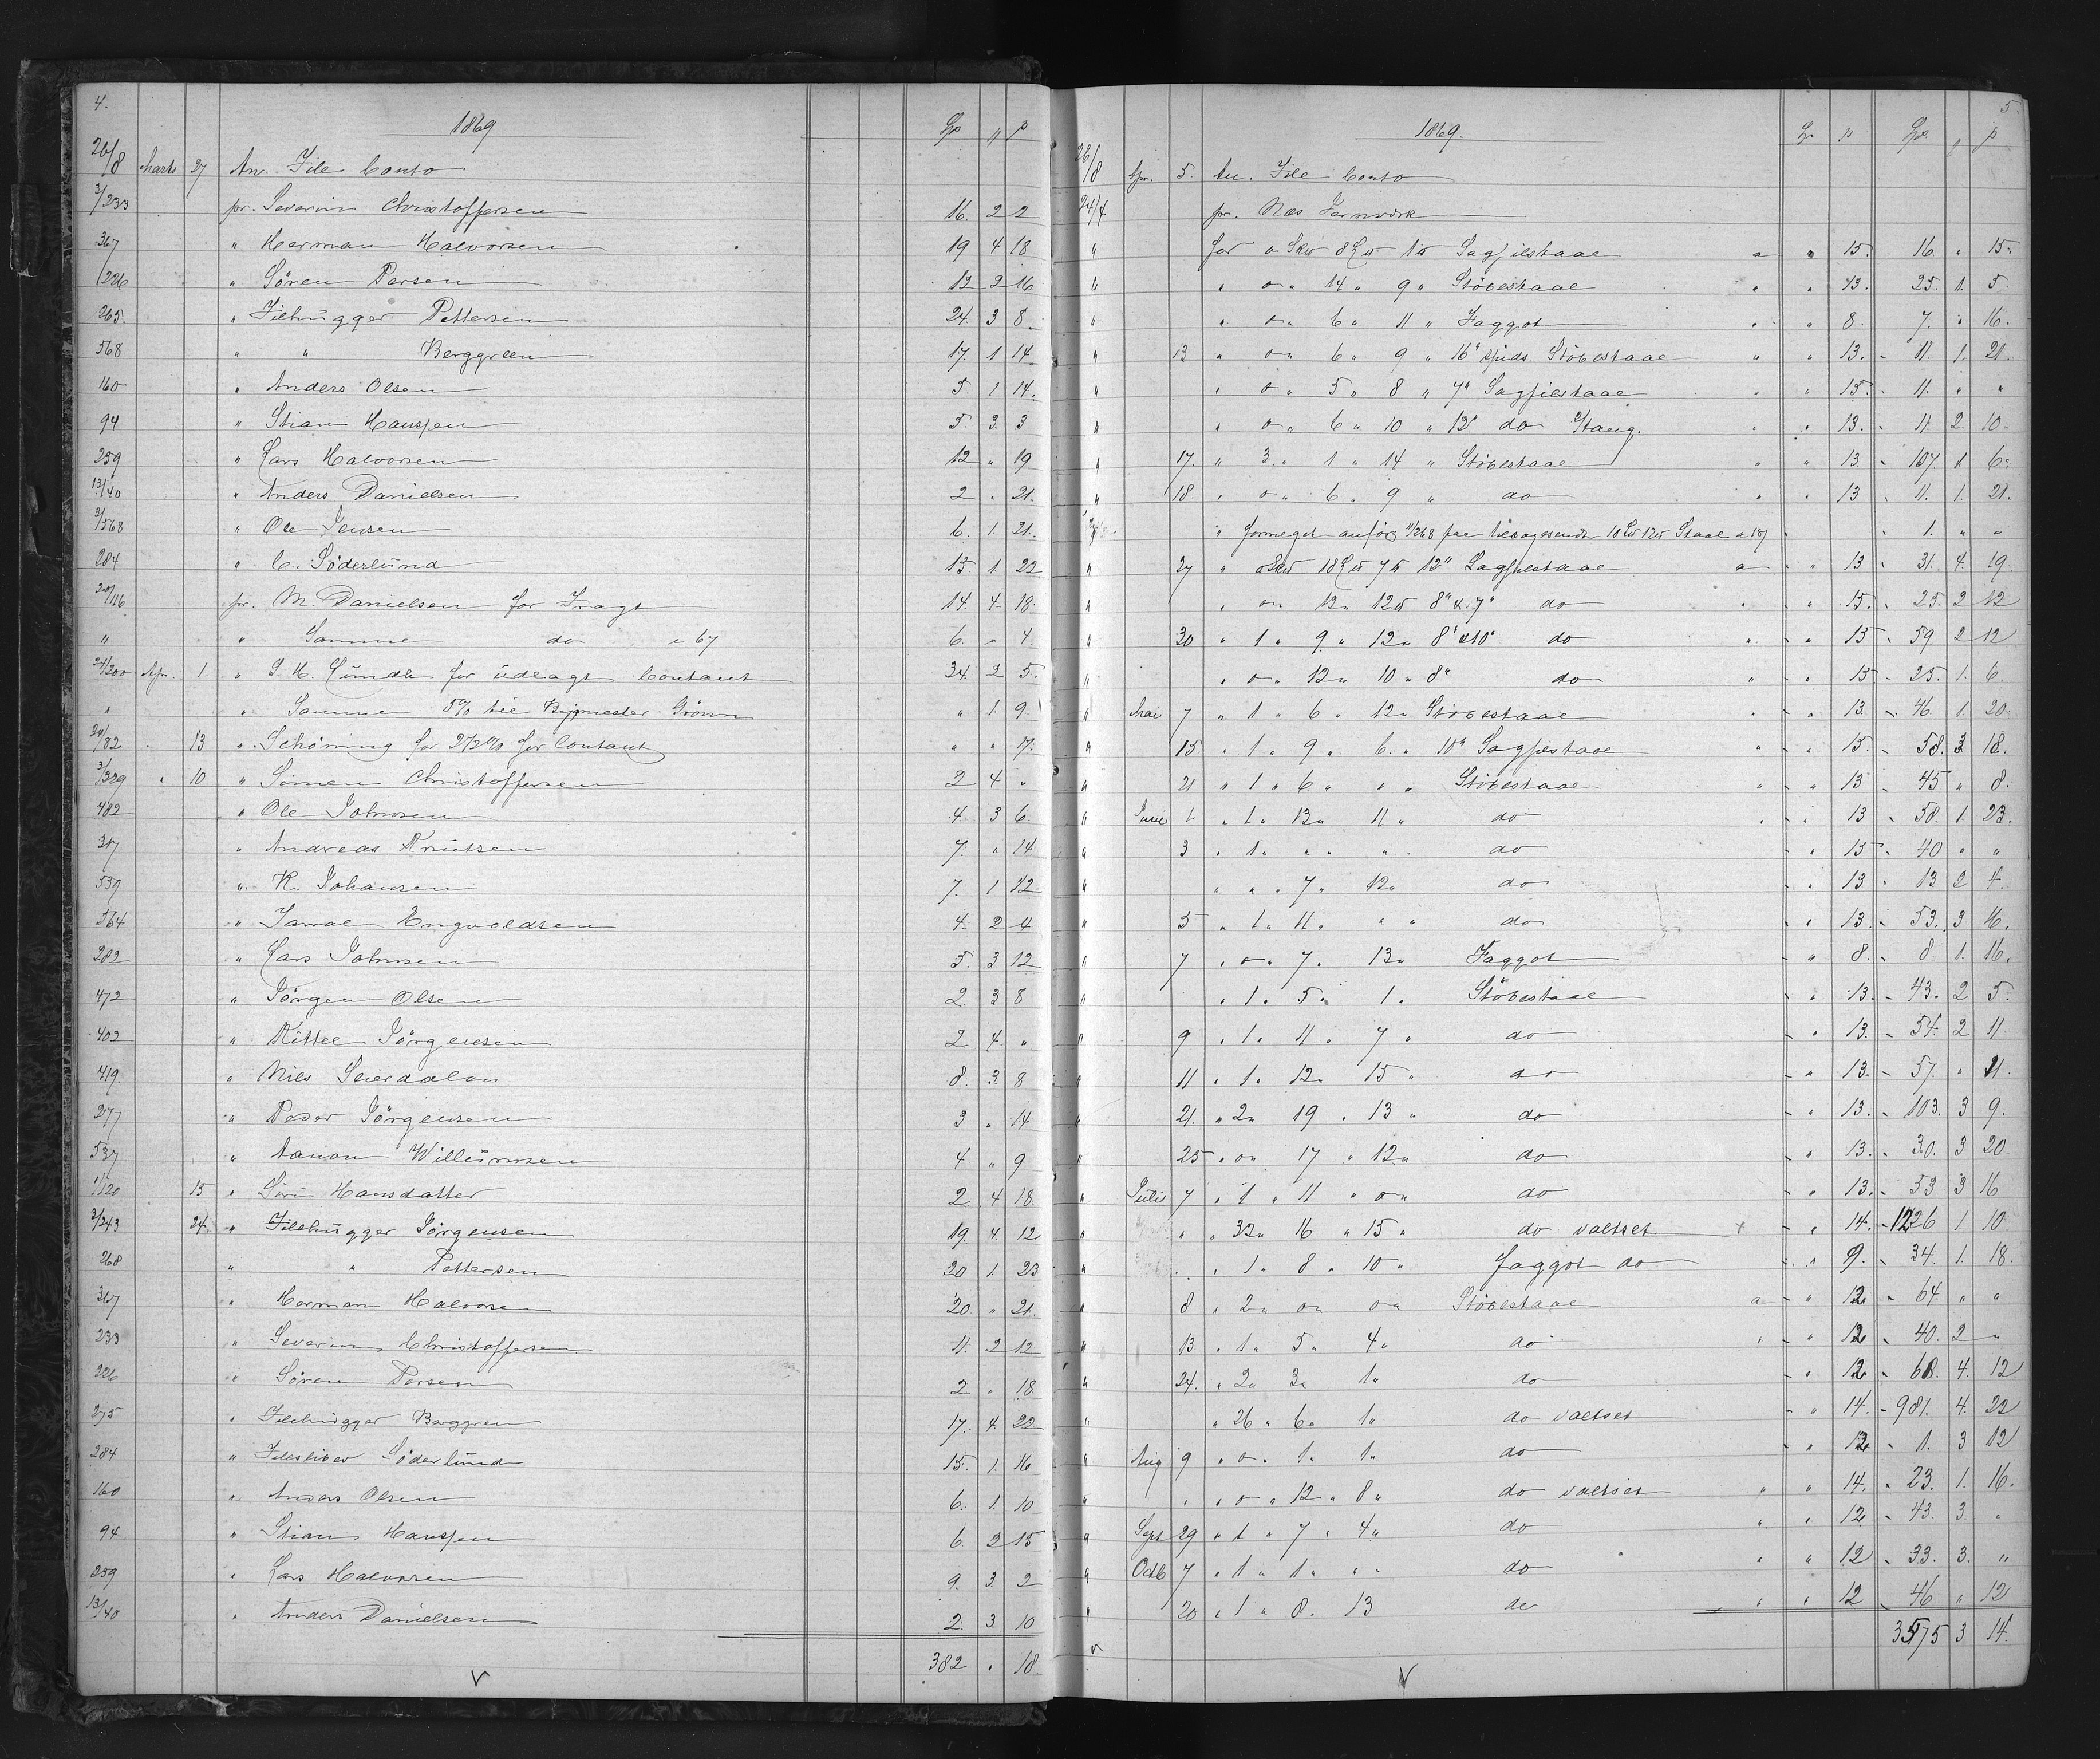 4.
1869 Sp. " p
26/8 Marts 27 An. File Conto
3/233 pr. Severin Christoffersen 16. 2 2
367 " Herman Halvorsen 19 4 18
226 " Sören Persen 12 2 16
265. " Filehugger Pettersen 24. 3 8.
568 " " Berggreen 17. 1 14
160 " Anders Olsen 5. 1 14.
94 " Stian Hansen 5. 3. 3
259 " Lars Halvorsen 12 " 19
13/40 " Anders Danielsen 2 " 21.
3/568 " Ole Jensen 6. 1. 21.
284 " C. Söderlund 15. 1. 22
20/116 pr. M. Danielsen for Fragt 14. 4. 18.
" " Samme do " 67 6. " 4
24/200 Apr. 1 " S. H. Lundh for udlagt Contant 34. 2 5.
" " Samme 5% til Bygmester Grönn " 1. 9.
20/82 " 13 " Schöning for 2 1/2 % for Contant " " 17.
3/329 " 10 " Simen Christoffersen 2 4. "
482 " Ole Johnsen 4. 3 6.
317 " Andreas Knutsen 7. " 14
539 " K. Johansen 7. 1 12
564 " Engvoldsen 4. 2 4
282 " Lars Johnsen 5. 3 12
472 " Jörgen Olsen 2. 3 8
402 " Kittel Jörgensen 2 4. "
419. " Niels 8. 3. 8
277 " Peder Jörgensen 3 " 14
537 " Aanon Willumsen 4 " 9
1/120 15 " Siri Hansdatter 2. 4 18.
3/243 24. " Filehugger Jörgensen 19. 4. 12
268 " " Pettersen 20 1. 23
367 " Herman Halvorsen 20 " 21.
233 " Severin Christoffersen 11. 2 12
226 " Sören Persen 2 " 18
275 " Filehugger Berggren 17. 4. 22
284 " Filesliber Söderlund 15. 1. 16
160 " Anders Olsen 6. 1. 10
94 " Stian Hansen 6. 2 15
259 " Lars Halvorsen 9. 3. 2
13/40 " Anders Danielsen 2. 3. 10
382 " 18
5.
1869. Sp. p Sp. " p
26/8 Apr. 5. An. File Conto
24/4 pr. Næs Jernværk
" for o 8 1 Sagfilstaal a " 15. 16. " 15.
" " o " 14 " 9 " Stöbestaal " " 13. 25. 1. 5.
" " o " 6 " 11 " Faggot " " 8. 7. " 16.
" 13 " o " 6 " 9 " 16" Stöbestaal " " 13. 11. 1. 21.
" " o " 5 " 8 " 7" Sagfilstaal " " 15. 11. " "
" " o " 6 " 10 " 12" do Stang. " " 13. 11. 2. 10.
" 17. " 3 " 1 " 14 " Stöbestaal " " 13. 107. 1 6.
" 18. " o " 6 " 9 " do " " 13 11. 1. 21.
" " anført 11/268 paa Staal 1. " "
" 27 " o 18 7 12" Sagfilstaal a " 13 31. 4. 19
" " o " 12 " 12 8" & 7" do " " 15. 25. 2 12
" 30 " 1 " 9 " 12 " 8" & 10" do " " 15 59. 2 12
" " o " 12 " 10 " 8" do " " 15 25. 1. 6.
" Mai 7 " 1 " 6 " 12 " Stöbestaal " " 13. 46. 1. 20.
" 15. " 1 " 9 " 6 " 10" Sagfilstaal " " 15. 58. 3 18.
" 21 " 1 " 6 " " " Stöbestaal " " 13 45 " 8.
" Juni 1 " 1 " 13 " 11 " do " " 13 58. 1. 23.
" 3 " 1 " " " " do " " 15 40 " "
" " " " 7 " 12 " do " " 13 13 2 4.
" 5 " 1 " 11 " " " do " " 13. 53. 3 16.
" 7 " o " 7 " 13 " Faggot " 8. 8. 1. 16.
" " 1 " 5 " 1 " Stöbestaal " 13. 43. 2 5.
" 9 " 1 " 11 " 7 " do " 13. 54. 2 11.
" 11 " 1 " 12 " 15 " do " 13. 57. " 11.
" 21. " 2 " 19 " 13 " do " 13. 103. 3 9.
" 25 " o " 17 " 12 " do " 13. 30. 3 20
" Juli 7 " 1 " 11 " o " do " 13. 53 3 16
" " " 32 " 16 " 15 " do valtset " 14. 1226 1. 10
" " " 1 " 8 " 10 " Faggot do " 9. 34. 1. 18.
" 8 " 2 " o " o " Stöbestaal a " 12 64. " "
" 13 " 1 " 5 " 4 " do " " 12 40. 2 "
" 24. " 2 " 3 " 1 " do " 12 68. 4. 12
" " 26 " 6 " 1 " do valtset " 14. 981. 4. 22
" Aug 9 " o " 1 " 1 " do " 12 1. 3 12
" " " o " 12 " 8 " do valtset " " 14. 23. 1. 16.
" Sept 29 " 1 " 7 " 4 " do " " 12. 43. 3. "
" Octb 7 " 1 " 1 " " " do " " 12 33. 3. "
" 20 " 1 " 8. 13 do " " 12 46 " 12
3575 3 14.